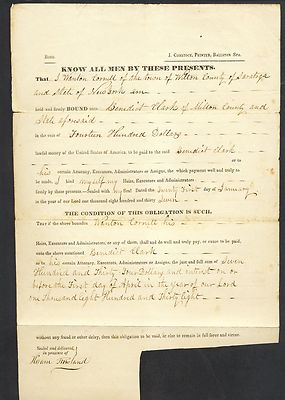 Bond. J. Comstock, Printer, Ballston Spa.
KNOW ALL MEN BY THESE PRESENTS,
That I Wanton Cornell of the town of Wilton County of Saratoga
and State of New York am
held and firmly BOUND unto Benedict Clark of Milton County and
State aforesaid
in the sum of Fourteen Hundred Dollars
lawful money of the United States of America, to be paid to the said Benedict Clark
or to
his certain Attorney, Executors, Administrators or Assigns, the which payment well and truly to
be made, I bind myself my Heirs, Executors and Administrators
firmly by these presents—Sealed with my Seal Dated the Twenty First day of January
in the year of our Lord one thousand eight hundred and thirty Seven
THE CONDITION OF THIS OBLIGATION IS SUCH,
That if the above bounden Wanton Cornell his
Heirs, Executors and Administrators, or any of them, shall and do well and truly pay, or cause to be paid,
unto the above mentioned Benedict Clark
or to his certain Attorney, Executors, Administrators or Assigns, the just and full sum of Seven
Hundred and Thirty Four Dollars and interest on or
before the First day of April in the year of our Lord
one Thousand Eight Hundred and Thirty Eight
without any fraud or other delay, then this obligation to be void, or else to remain in full force and virtue.
Sealed and delivered,
in presence of
Hiram Rowland